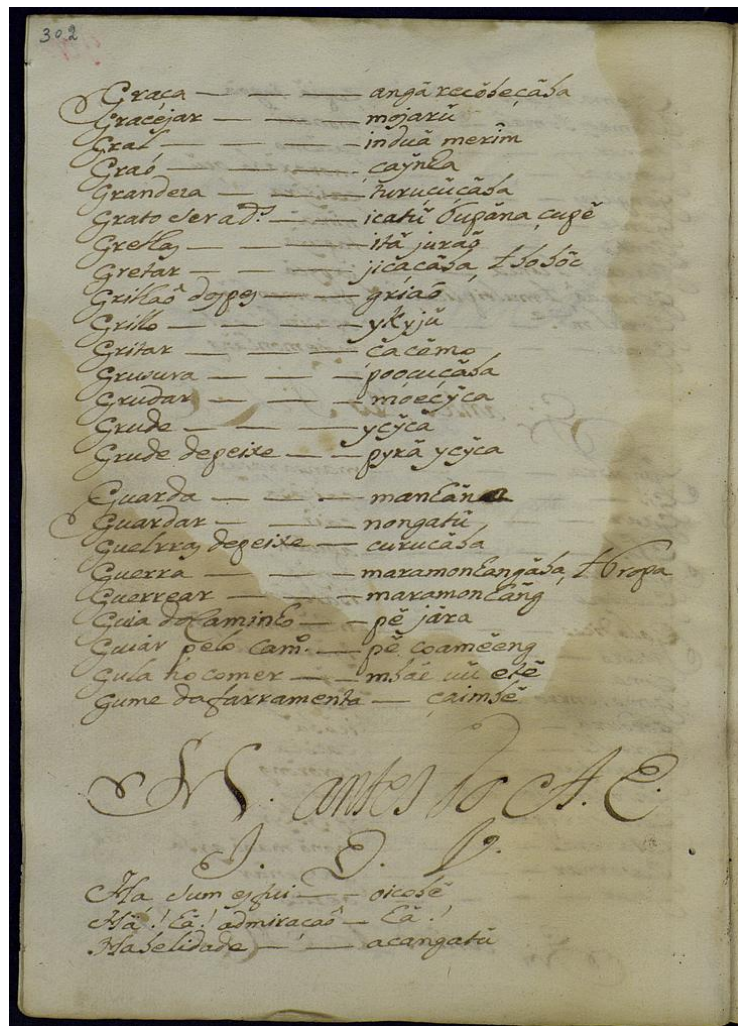 302
Graça — — — angã recôbeçãba
Gracejar — — — mojarũ
Gral — — — induã merim
Graõ — — —
Grandeza — — — turucuçãba
Grato ser a Dˢ. — — icatũ Tupãna çupẽ
Grelhas — — — itã jurao
Gretar — — — jicacãba, t bobõc
Grilhaõ dos pes — — griaõ
Grillo — — — ykyjũ
Gritar — — — çacẽmo
— — — poocuçãba
Grudar — — — moecỹca
Grude — — — ycỹca
Grude de peixe — — pyrã ycỹca
Guarda — — —
Guardar — — — nongatũ
Guelrras de peixe — curucãba
Guerra — — — maramonhangãba, t Tropa
Guerrear — — — maramonhãng
Guia do Caminho — — pẽ jãra
Guiar pelo cam.º — pẽ coamẽeng
Gula no comer — — mbae uũ etẽ
Gume da farramenta — çaimbẽ
H. antes do A. E.
I. O. V.
Ha sum es fui — — oicobẽ
Há! hã! admiracaõ — hã!
Habelidade — — acangatũ